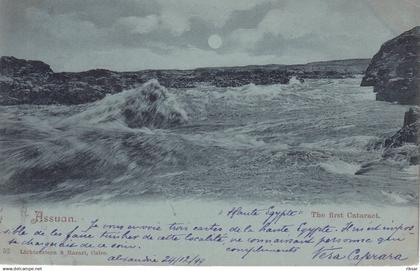 "Haute Egypte"
Assuan. The first Cataract.
Je vous envoie trois cartes de la haute Egypte. Il m'est impos
sible de les faire timbrer de cette localité, ne connaissant personne qui
se chargerait de ce soin. compliments
52 Lichtenstern & Harari, Cairo. Vera Caprara
alexandrie 24/12/99